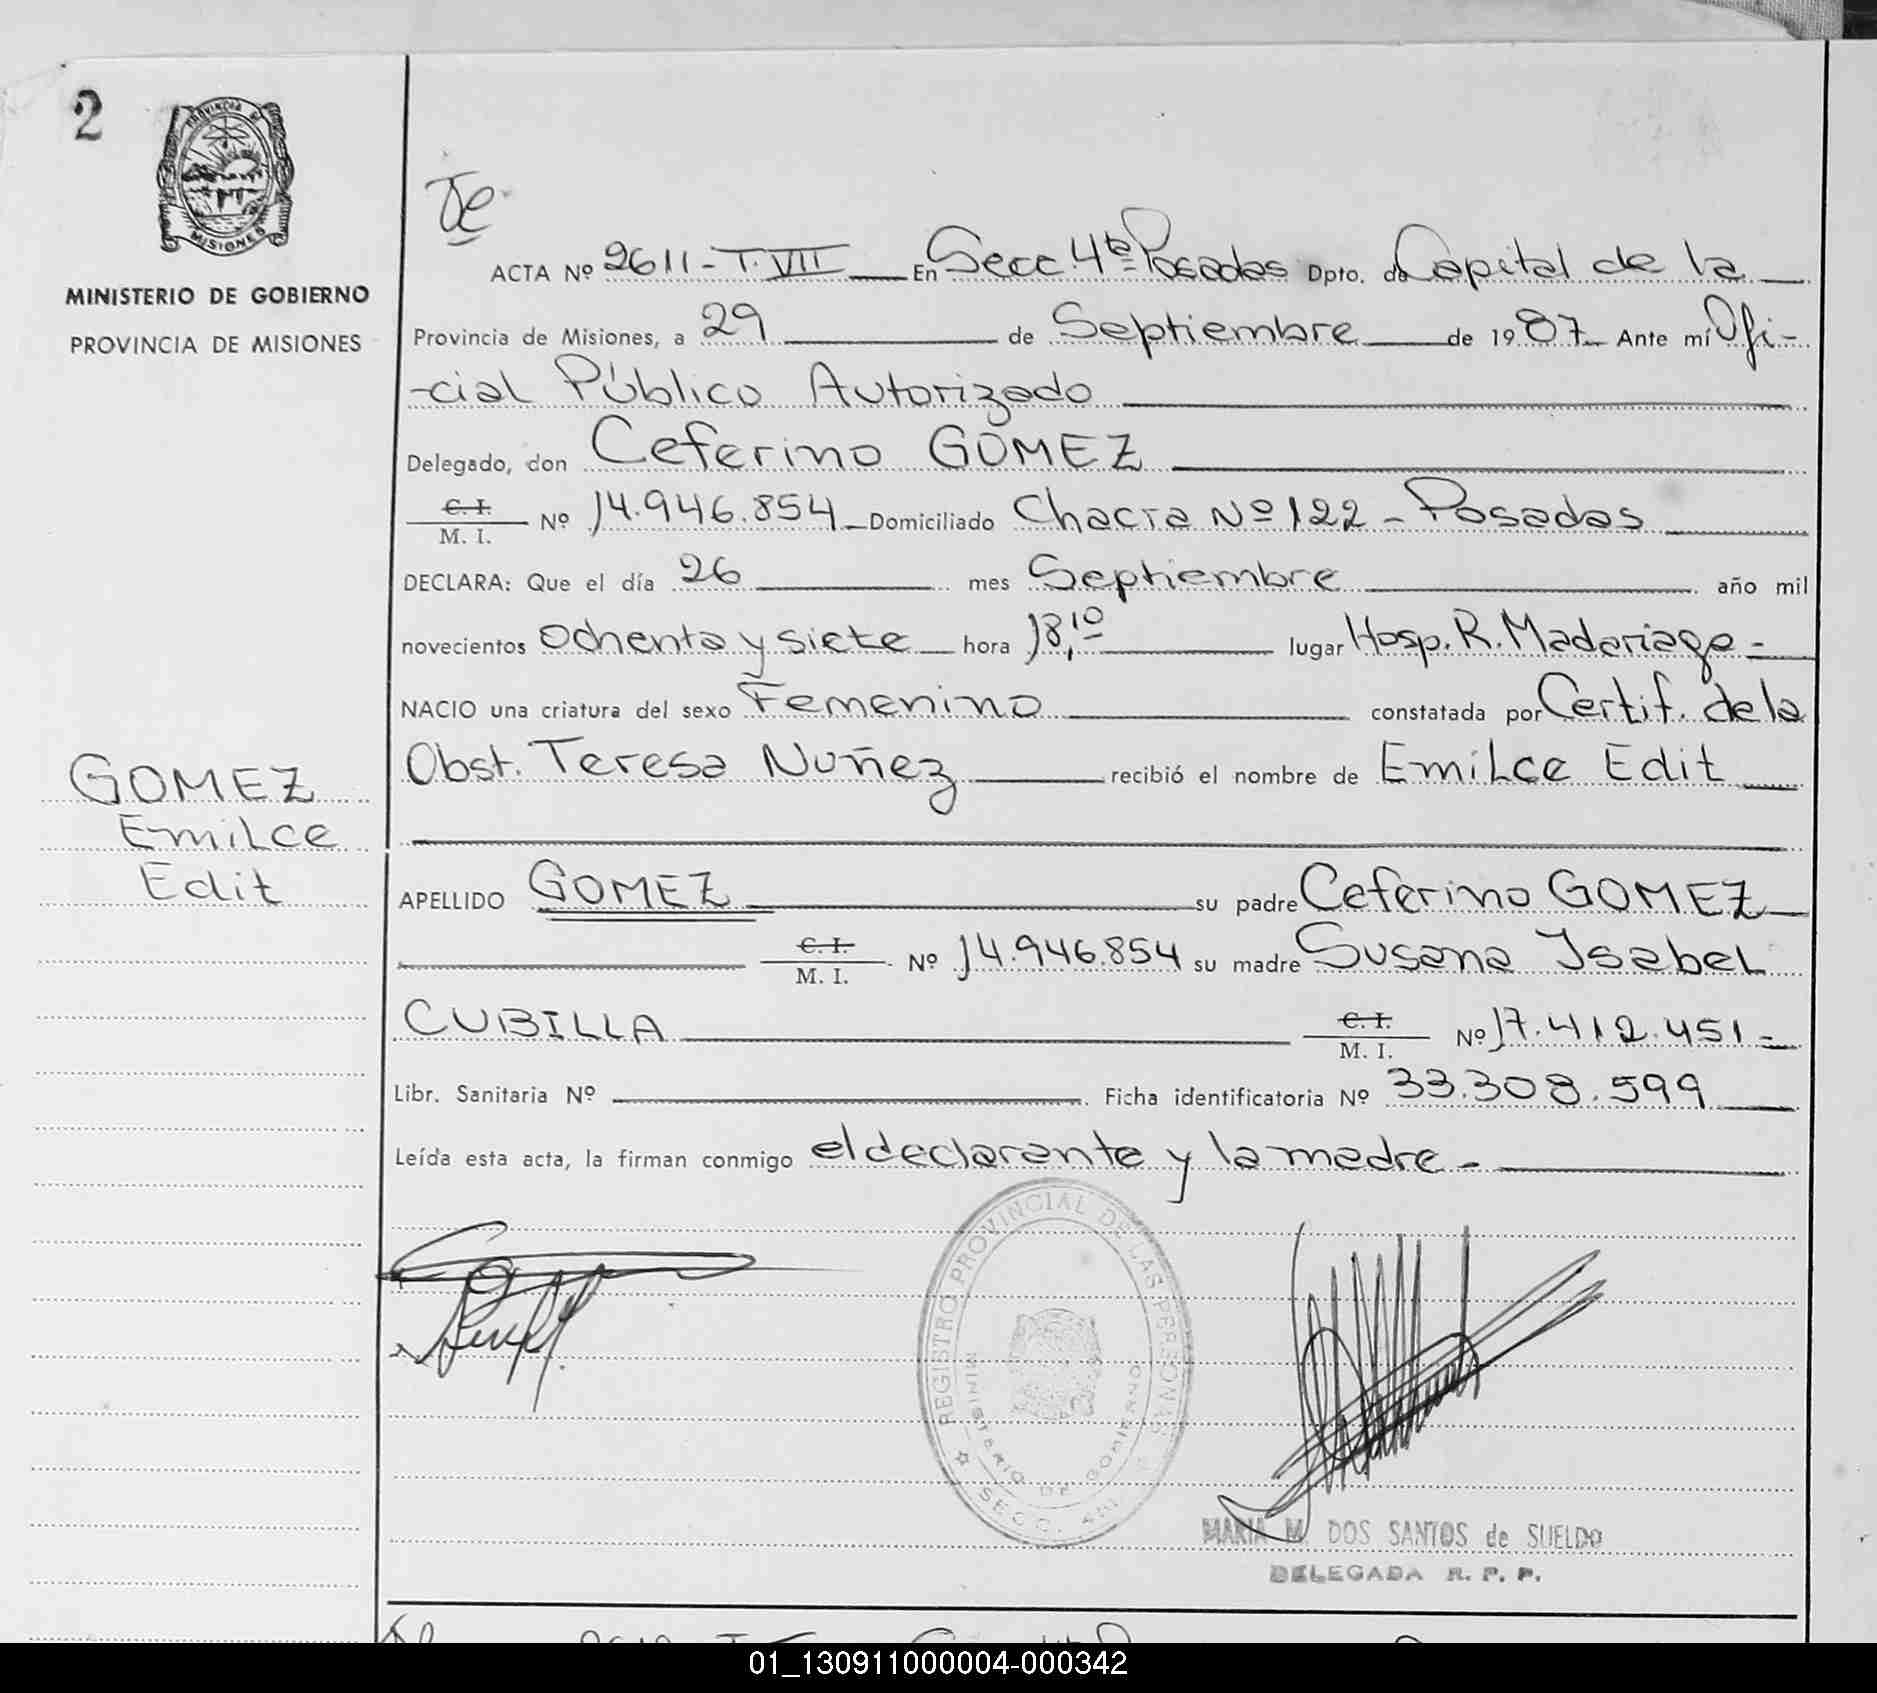 2
PROVINCIA DE
MISIONES
MINISTERIO DE GOBIERNO
PROVINCIA DE MISIONES
GOMEZ
Emilce
Edit
ACTA Nº 2611 - T. VII En Secc. 4ta Posadas Dpto. de Capital de la
Provincia de Misiones, a 29 de Septiembre de 1987 Ante mí Ofi-
-cial Público Autorizado
Delegado, don Ceferino GOMEZ
C. I.
M. I. Nº 14.946.854 Domiciliado Chacra Nº 122 - Posadas
DECLARA: Que el día 26 mes Septiembre año mil
novecientos ochenta y siete hora 18,10 lugar Hosp. R. Madariaga -
NACIO una criatura del sexo Femenino constatada por Certif. de la
Obst. Teresa Nuñez recibió el nombre de Emilce Edit
APELLIDO GOMEZ su padre Ceferino GOMEZ
C. I.
M. I. Nº 14.946.854 su madre Susana Isabel
CUBILLA C. I.
M. I. Nº 17.412.451 -
Libr. Sanitaria Nº Ficha identificatoria Nº 33.308.599
Leída esta acta, la firman conmigo el declarante y la madre -
REGISTRO PROVINCIAL DE LAS PERSONAS
MINISTERIO DE GOBIERNO
SECC. 4ta
MARIA M. DOS SANTOS de SUELDO
DELEGADA R. P. P.
01_130911000004-000342